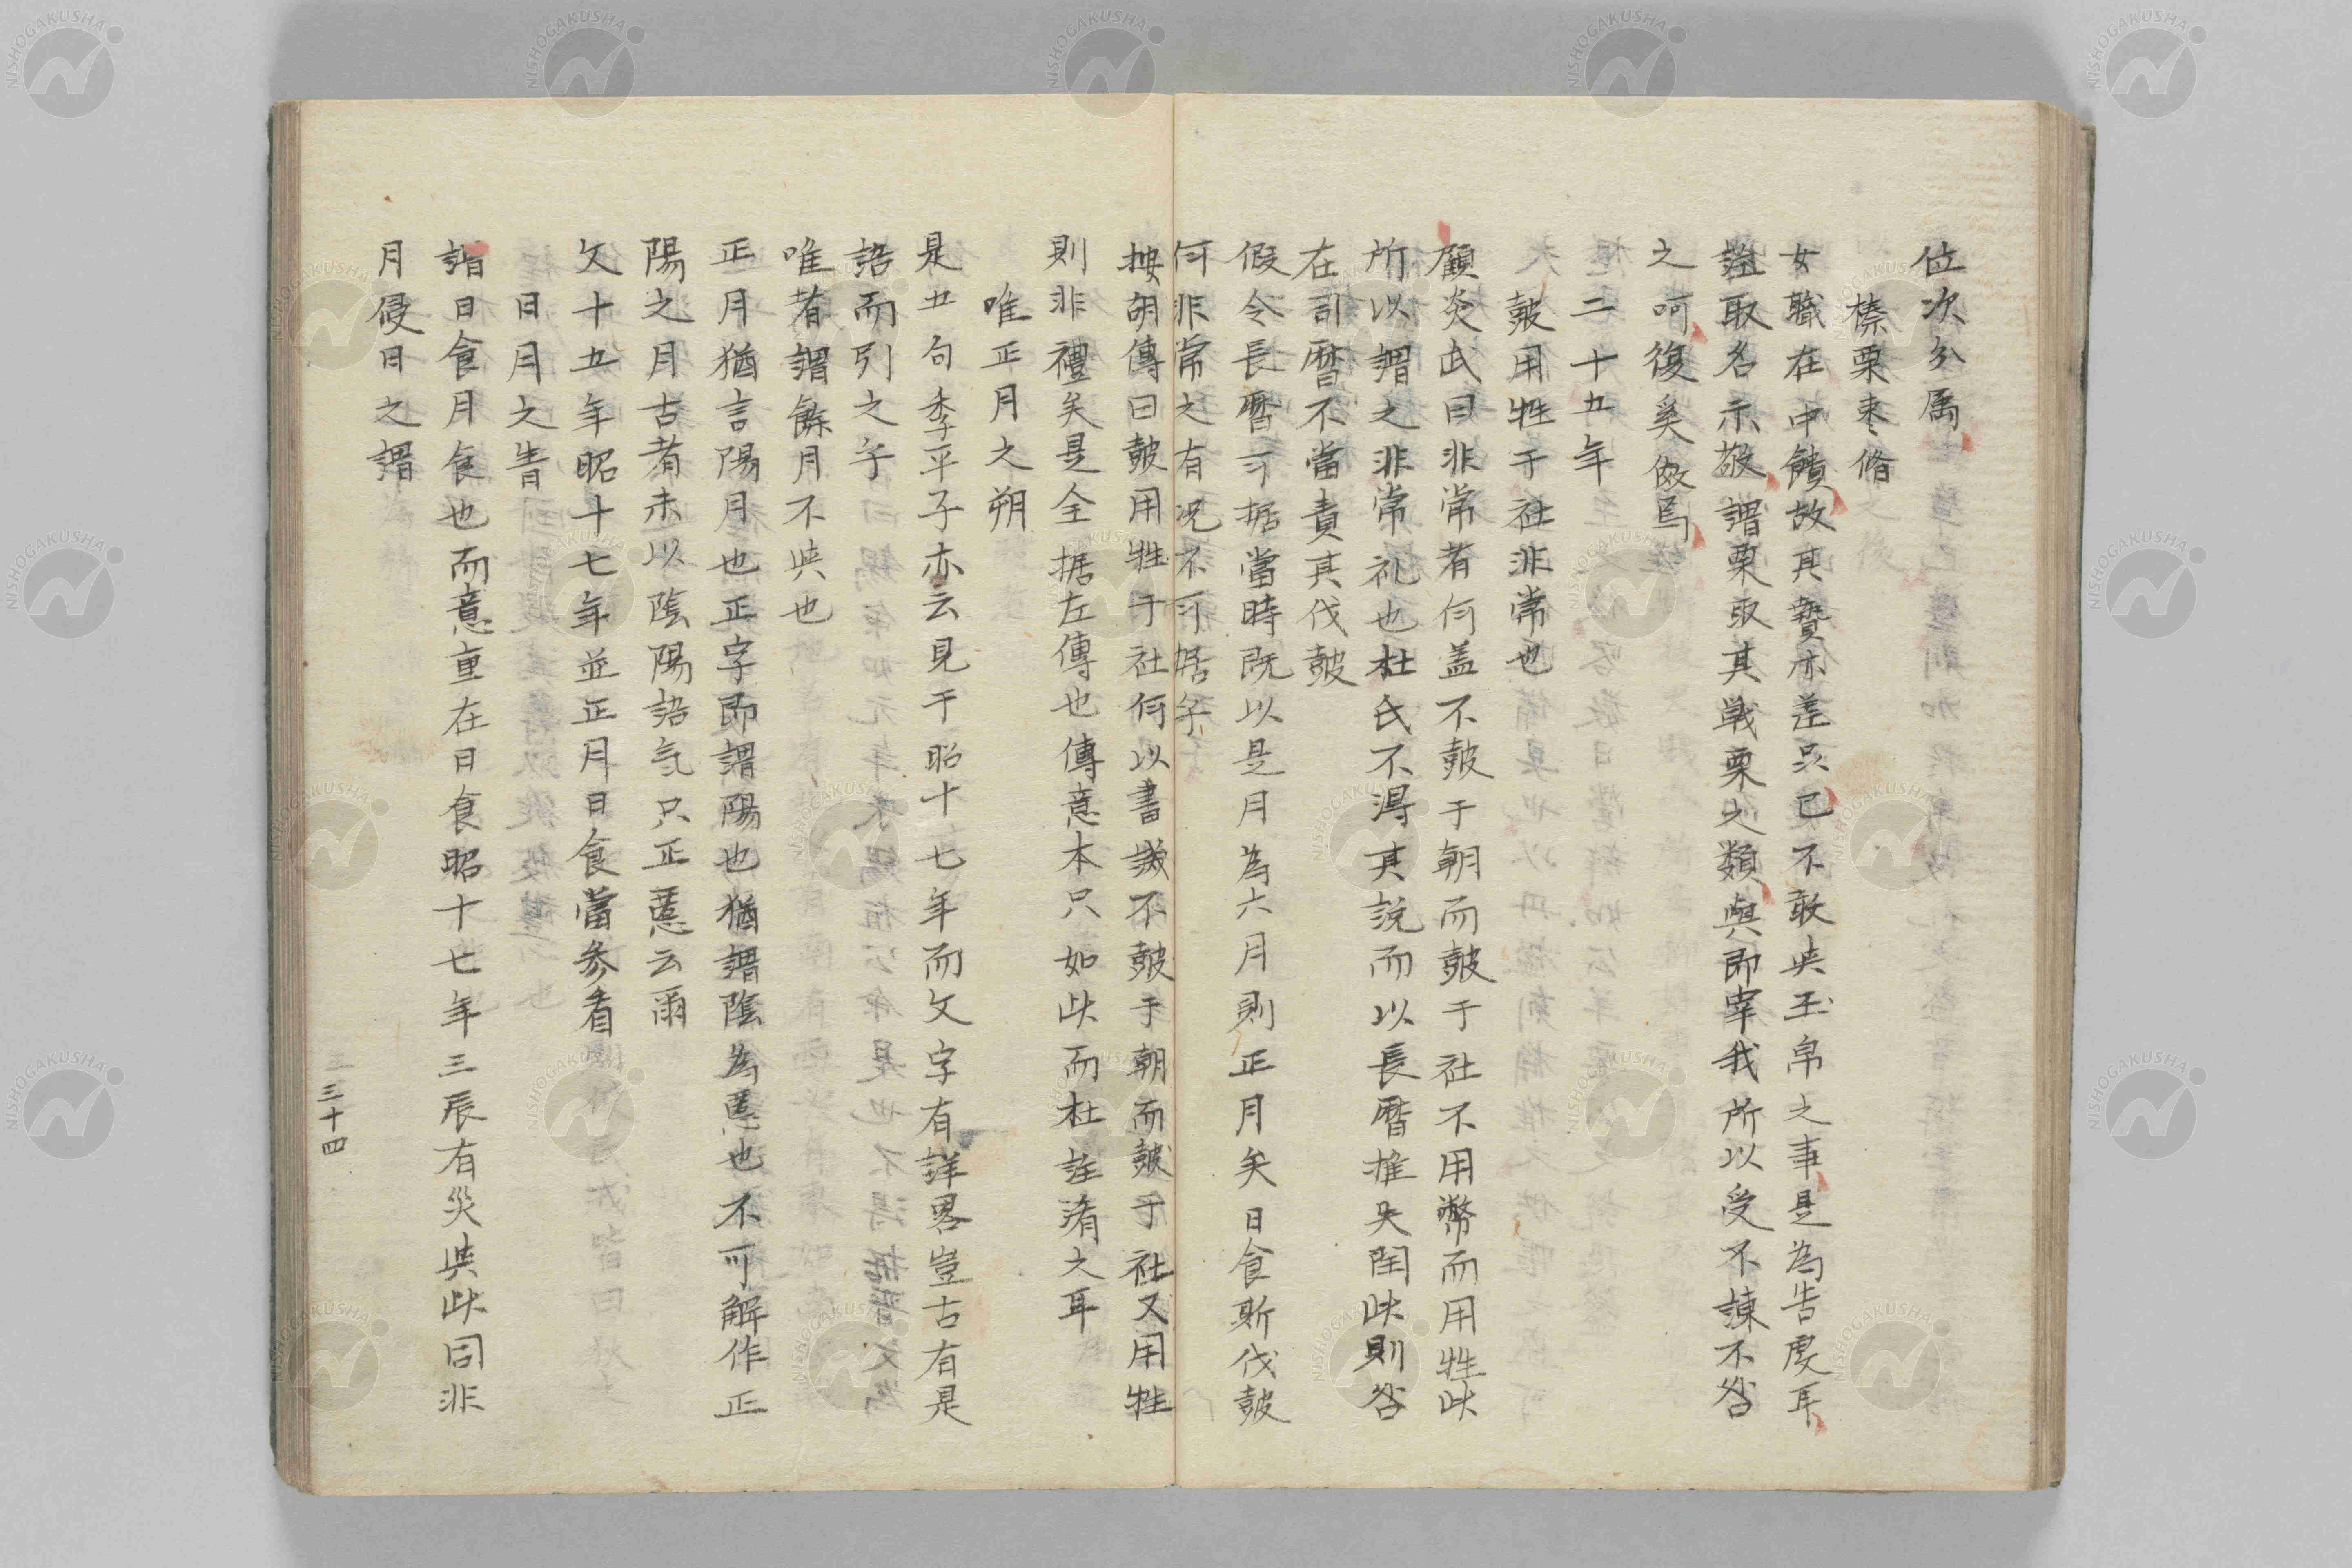 位次分属
榛栗棗脩
女職在中饋故其贄亦差只已不敢与玉帛之事是為告虔耳
註取名示敬謂栗取其戦栗之類與即宰我所以受不諫不咎
之呵復奚倣焉
二十五年
皷用牲于社非常也
顧炎武曰非常者何盖不皷于朝而皷于社不用幣而用牲此
所以謂之非常礼也杜氏不得其説而以長暦推失閏此則咎
在司暦不當責其伐皷
假令長暦可据當時既以是月為六月則正月矣日食斯伐皷
何非常之有况不可据乎
按胡傳曰皷用牲于社何以書譏不皷于朝而皷于社又用牲
則非禮矣是全据左傳也傳意本只如此而杜註淆之耳
唯正月之朔
是五句季平子亦云見于昭十七年而文字有詳畧豈古有是
語而引之乎
唯者謂餘月不与也
正月猶言陽月也正字即謂陽也猶謂陰為慝也不可解作正
陽之月古者未以陰陽語気只正慝云爾
文十五年昭十七年並正月日食當参看
日月之眚
謂日食月食也而意重在日食昭十七年三辰有災与此同非
月侵日之謂
三十四